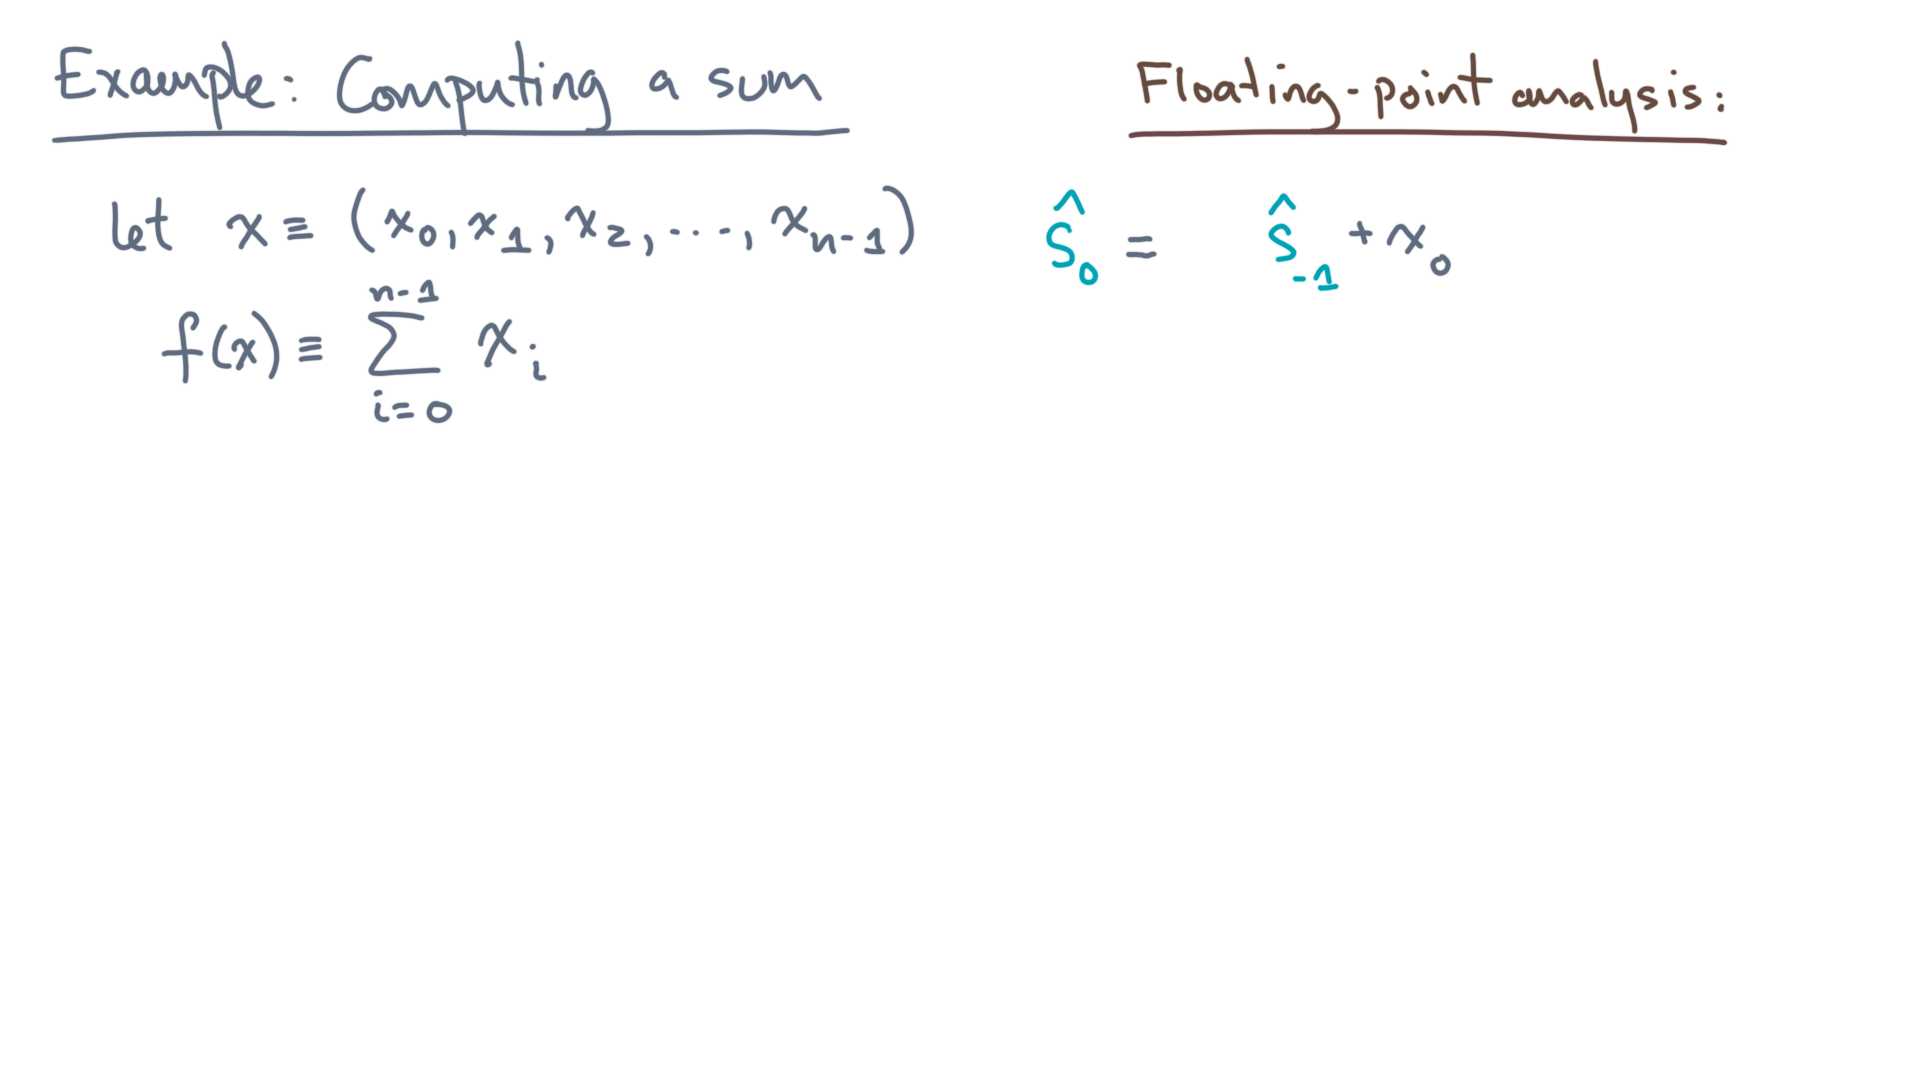 Example: Computing a sum
let x ≡ (x₀, x₁, x₂, ..., xₙ₋₁)
f(x) ≡ ∑_{i=0}^{n-1} xᵢ
Floating-point analysis:
ŝ₀ = ŝ₋₁ + x₀